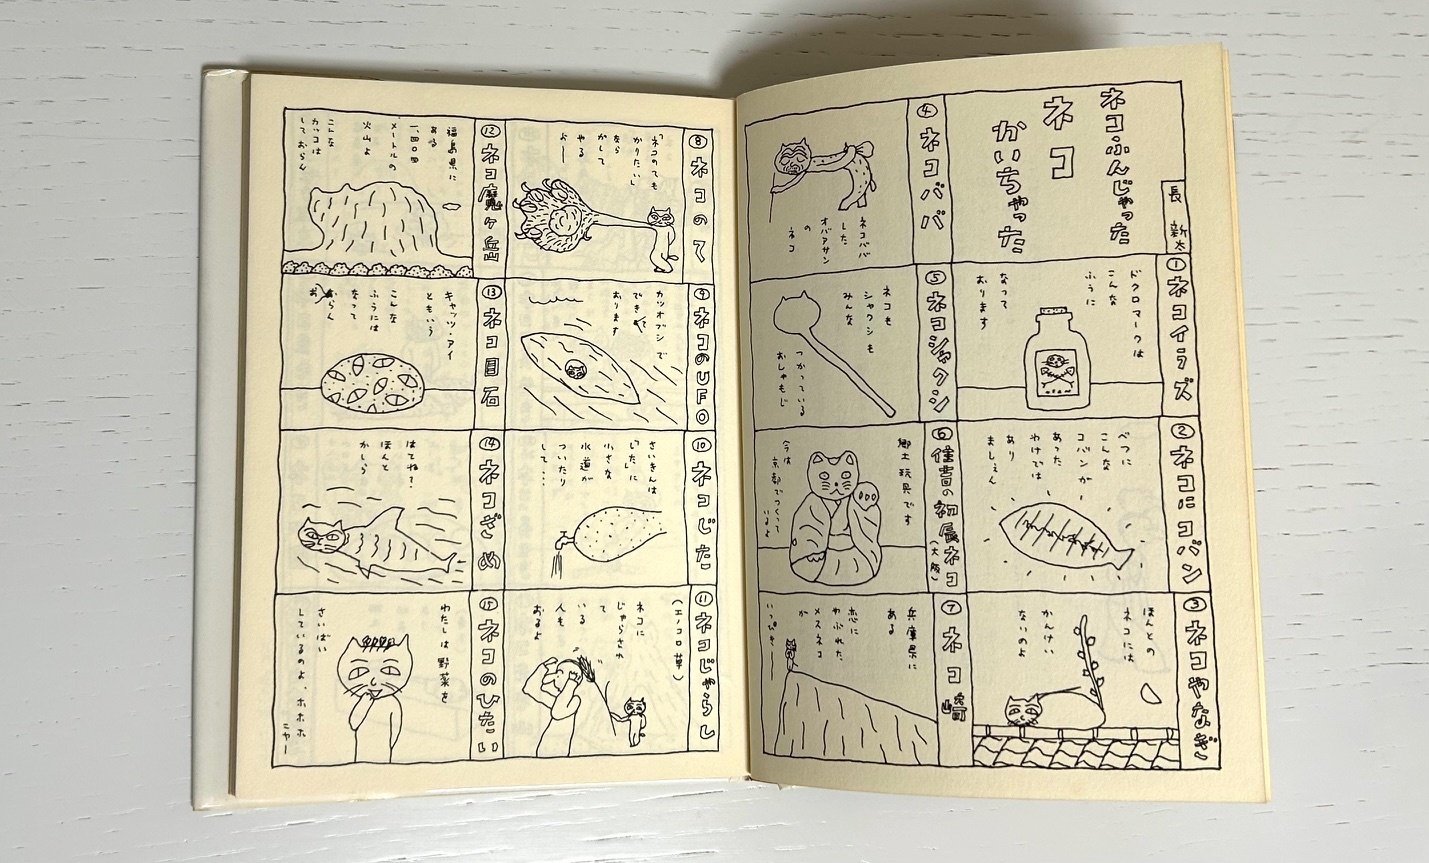 ネコふんじゃった
ネコ
かいちゃった
長 新太
①ネコイラズ
ドクロマークは
こんな
ふうに
なって
おります
②ネコにコバン
べつに
こんな
コバンが
あった
わけでは
あり
ましぇん
③ネコやなぎ
ほんとの
ネコには
かんけい
ないのよ
④ネコババ
ネコババ
した
オバアサン
の
ネコ
⑤ネコシャクシ
ネコも
シャクシも
みんな
つかっている
おしゃもじ
⑥住吉の初辰ネコ(大阪)
郷土玩具です
今は
京都でつくって
いるよ
⑦ネコ崎
兵庫県に
ある
恋に
やぶれた
メスネコ
が
いっぴき
⑧ネコのて
「ネコのても
かりたい」
なら
かして
やる
よー
⑨ネコのUFO
カツオブシで
できて
おります
⑩ネコじた
さいきんは
「した」に
小さな
水道が
ついたり
して・・・
⑪ネコじゃらし
(エノコロ草)
ネコに
じゃらされ
て
いる
人も
おるよ
⑫ネコ魔ヶ岳
福島県に
ある
メートルの
火山よ
こんな
カッコは
しておらん
⑬ネコ目石
キャッツ・アイ
ともいう
こんな
ふうには
なって
おらん
⑭ネコざめ
はてね?
ほんと
かしら
⑮ネコのひたい
わたしは野菜を
さいばい
しているのよ、ホホホ
ニャー